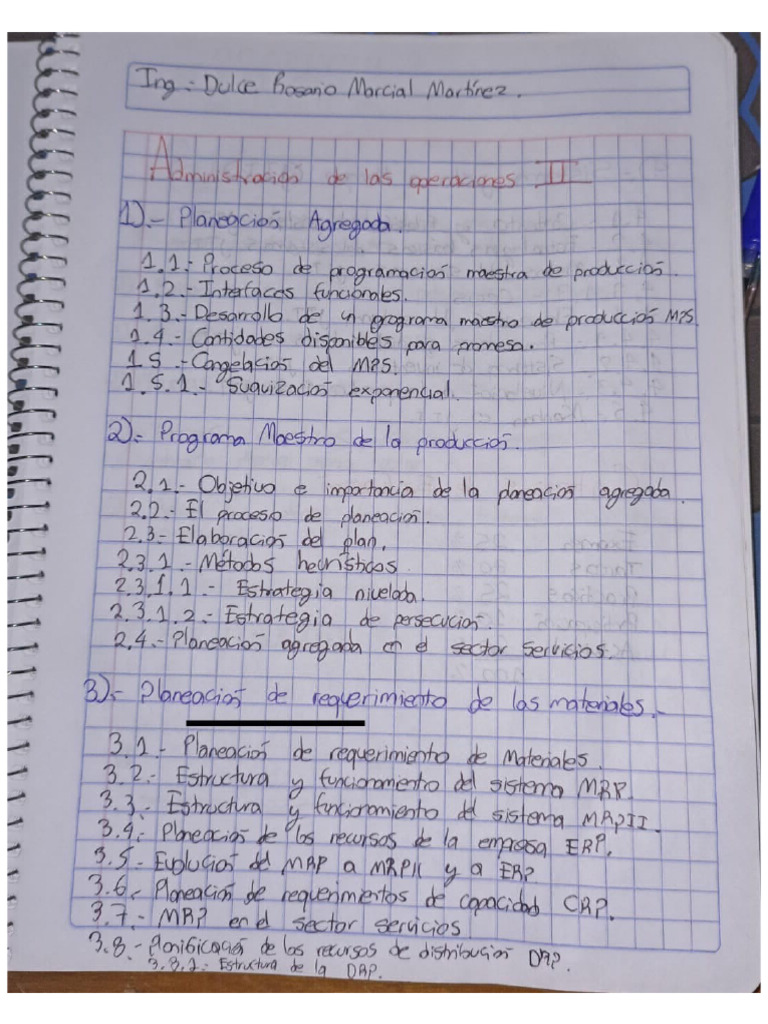 Ing.: Dulce Rosario Marcial Martínez.
Administración de las operaciones II
1).- Planeación Agregada.
1.1.- Proceso de programación maestra de producción.
1.2.- Interfaces funcionales.
1.3.- Desarrollo de un programa maestro de producción MPS.
1.4.- Cantidades disponibles para promesa.
1.5.- Congelación del MPS.
1.5.1.- Suavización exponencial.
2).- Programa Maestro de la producción.
2.1.- Objetivo e importancia de la planeación agregada.
2.2.- El proceso de planeación.
2.3.- Elaboración del plan.
2.3.1.- Métodos heurísticos.
2.3.1.1.- Estrategia nivelada.
2.3.1.2.- Estrategia de persecución.
2.4.- Planeación agregada en el sector servicios.
3).- Planeación de requerimiento de las materiales.-
3.1.- Planeación de requerimiento de Materiales.
3.2.- Estructura y funcionamiento del sistema MRP.
3.3.- Estructura y funcionamiento del sistema MRPII.
3.4.- Planeación de los recursos de la empresa ERP.
3.5.- Evolución del MRP a MRPII y a ERP
3.6.- Planeación de requerimientos de capacidad CRP.
3.7.- MRP en el sector servicios
3.8.- Planificación de los recursos de distribución DRP.
3.8.1.- Estructura de la DRP.